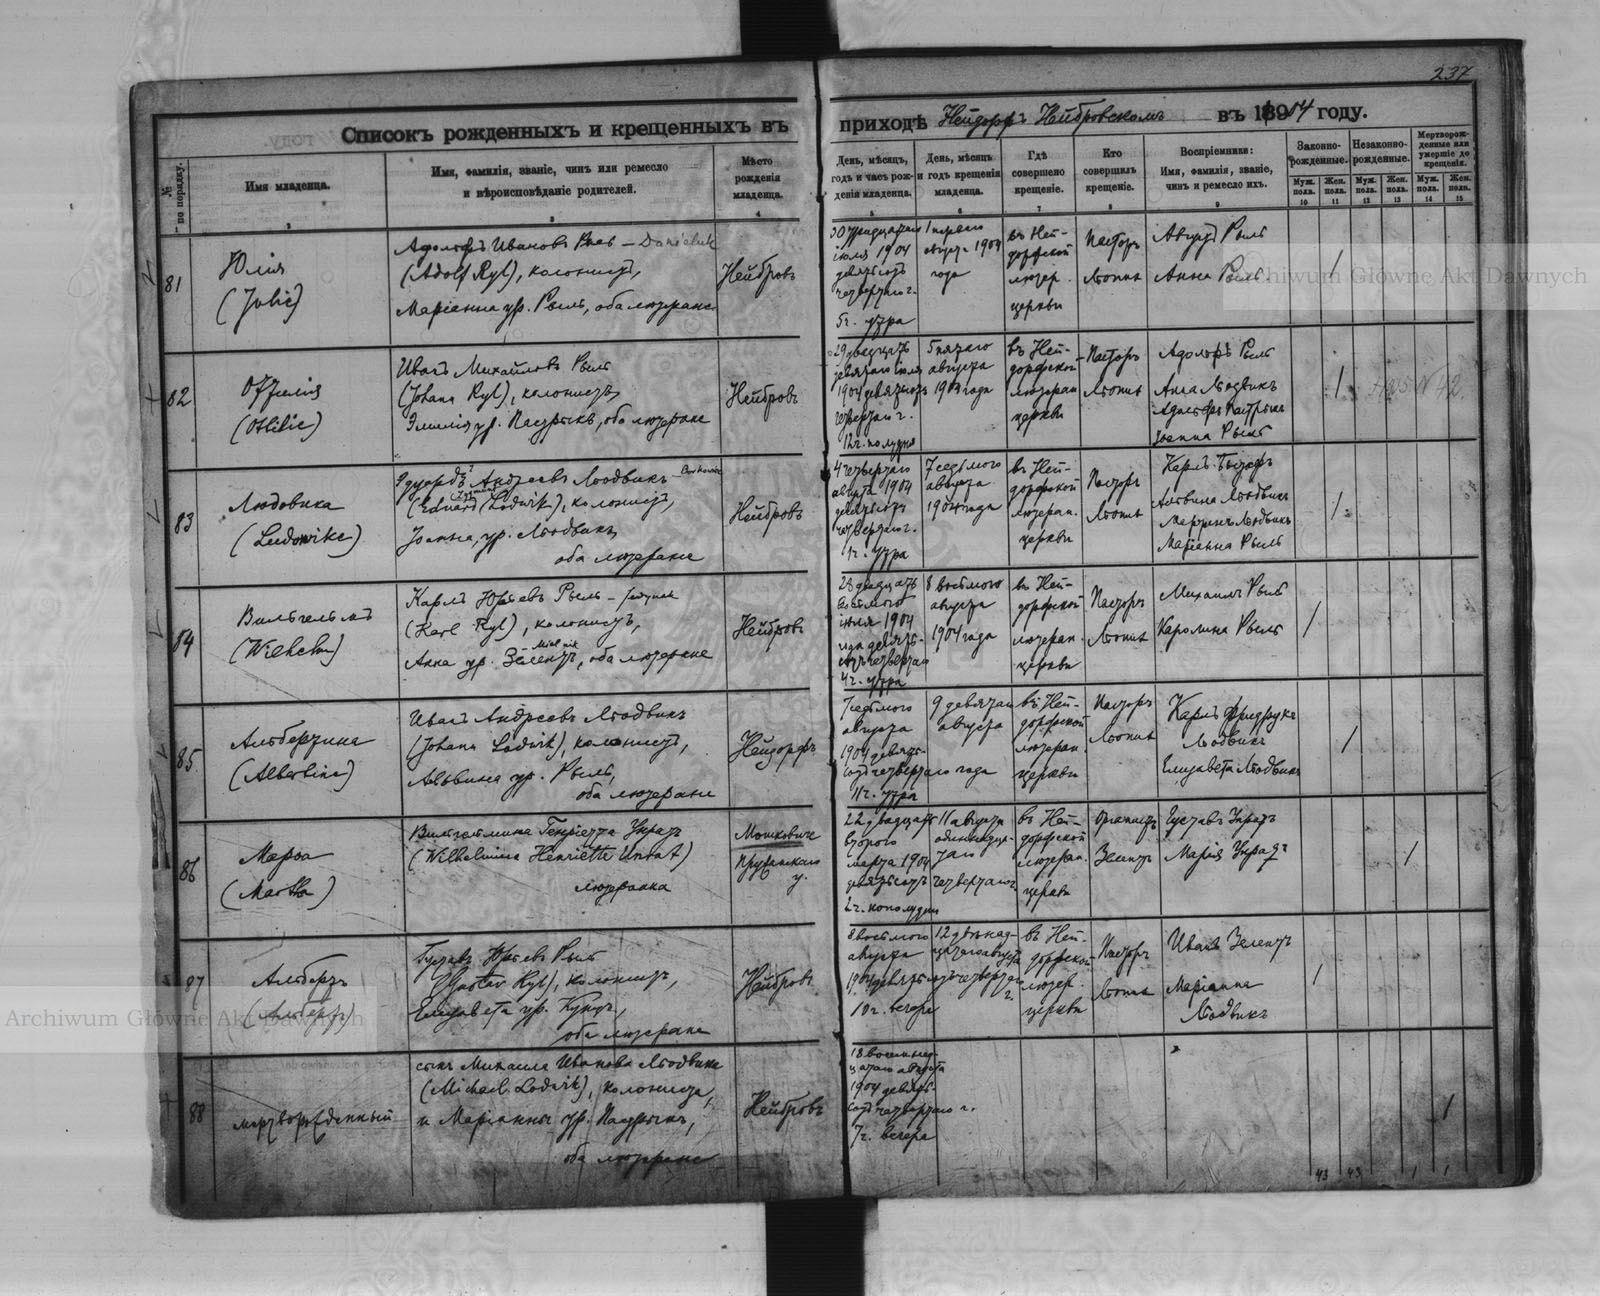 237
Списокъ рожденныхъ и крещенныхъ въ приходѣ Нейдорфъ Нейбровскомъ въ 1904 году.
№ по порядку.
Имя младенца.
Имя, фамилія, званіе, чинъ или ремесло
и вѣроисповѣданіе родителей.
Мѣсто
рожденія
младенца.
День, мѣсяцъ,
годъ и часъ рож-
денія младенца.
День, мѣсяцъ
и годъ крещенія
младенца.
Гдѣ
совершено
крещеніе.
Кто
совершилъ
крещеніе.
Воспріемники:
Имя, фамилія, званіе,
чинъ и ремесло ихъ.
Законно-
рожденные.
Незаконно-
рожденные.
Мертворож-
денные или
умершіе до
крещенія.
Муж. пола.
Жен. пола.
Муж. пола.
Жен. пола.
Муж. пола.
Жен. пола.
1 2 3 4 5 6 7 8 9 10 11 12 13 14 15
81
Юлія
(Julie)
Адольфъ Ивановъ Рыль
(Adolf Ryl), колонистъ,
Маріанна ур. Рыль, оба лютеране
Нейбровъ
30 тридцатаго
іюля 1904
девятьсотъ
четвертаго г.
5 г. утра
1 перваго
августа 1904
года
въ Ней-
дорфской
лютер.
церкви
Пасторъ
Августъ Рыль
Анна Рыль
1
82
Оттилія
(Ottilie)
Иванъ Михайловъ Рыль
(Johann Ryl), колонистъ
Эмилія ур. Пастрыкъ, оба лютеране
Нейбровъ
29 двадцать
девятаго іюля
1904 девятьсотъ
четвертаго г.
12 ч. полудня
5 пятаго
августа
1904 года
въ Ней-
дорфской
лютеран.
церкви
Пасторъ
Адольфъ Рыль
Анна Людвикъ
Адольфъ Пастрыкъ
Іоанна Рыль
1
83
Людовика
(Ludowike)
Эдуардъ Андреевъ Людвикъ
(Eduard Lodwik), колонистъ,
Іоанна, ур. Людвикъ,
оба лютеране
Нейбровъ
4 четвертаго
августа 1904
девятьсотъ
четвертаго г.
1 ч. утра
7 седьмого
августа
1904 года
въ Ней-
дорфской
лютеран.
церкви
Пасторъ
Людвикъ
Маріанна Рыль
1
84
Вильгельмъ
(Wilhelm)
Карлъ Юрьевъ Рыль
(Karl Ryl), колонистъ,
Анна ур. Зелентъ, оба лютеране
Нейбровъ
28 двадцать
восьмого
іюля 1904
года девять-
сотъ четвертаго
4 ч. утра
8 восьмого
августа
1904 года
въ Ней-
дорфской
лютеран.
церкви
Пасторъ
Михаилъ Рыль
Каролина Рыль
1
85
Альбертина
(Albertine)
Иванъ Андреевъ Людвикъ
(Johann Lodwik), колонистъ,
Альвина ур. Рыль,
оба лютеране
Нейдорфъ
7 седьмого
августа
1904 девять-
сотъ четвертаго года
11 ч. утра
9 девятаго
августа
въ Ней-
дорфской
лютеран.
церкви
Пасторъ
Карлъ Фридрихъ
Людвикъ
Елизавета Людвикъ
1
86
Марѳа
(Martha)
Вильгельмина Генріетта Унратъ
(Wilhelmine Henriette Unrat)
лютеранка
Мошковиче
Пружанскаго
у.
22 двадцать
второго
марта 1904
девятьсотъ
четвертаго г.
2 ч. пополудни
11 августа
одиннадца-
таго
въ Ней-
дорфской
лютеран.
церкви
Органистъ
Зелентъ
Густавъ Унратъ
Марія Унратъ
1
87
Альбертъ
(Альбертъ)
Густавъ Юрьевъ Рыль
(Gustav Ryl), колонистъ,
Елизавета ур. Кунцъ,
оба лютеране
Нейбровъ
8 восьмого
августа
1904 девять-
сотъ четвертаго г.
10 ч. вечера
12 двѣнад-
цатаго августа
въ Ней-
дорфской
лютер.
церкви
Пасторъ
Иванъ Зелентъ
Маріанна
Людвикъ
1
88
мертворожденный
сынъ Михаила Иванова Людвика
(Michael Lodwik), колониста,
и Маріанны ур. Пастрыкъ,
оба лютеране
Нейбровъ
18 восемнад-
цатаго августа
1904 девять-
сотъ четвертаго г.
7 ч. вечера
1
43 43 1 1
Archiwum Główne Akt Dawnych
Archiwum Główne Akt Dawnych